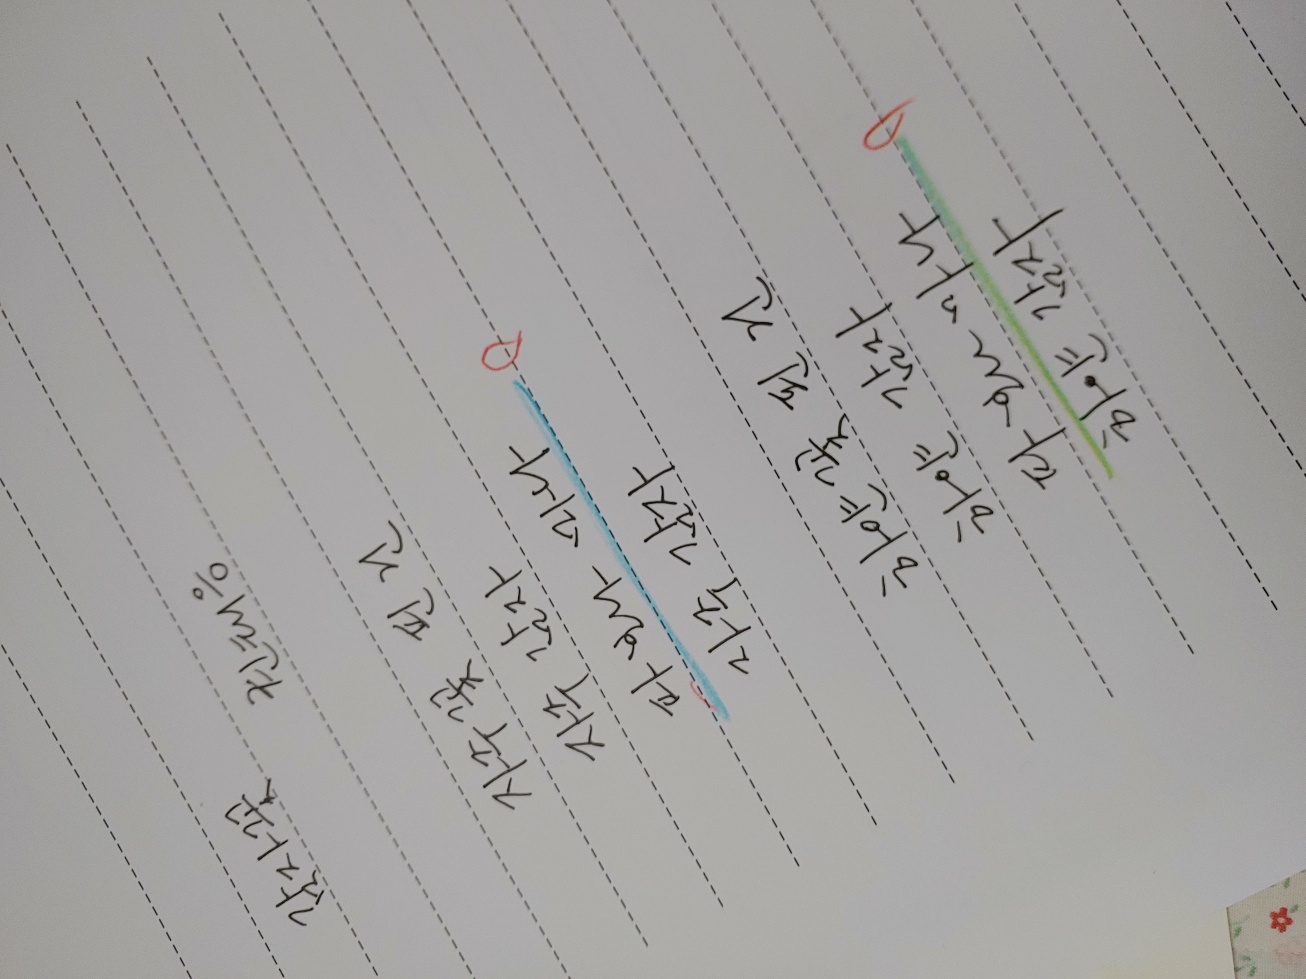 감자꽃 권태응
자주꽃 핀 건
자주 감자
파 보나 마나
자주 감자
하얀꽃 핀 건
하얀 감자
파 보나 마나
하얀 감자